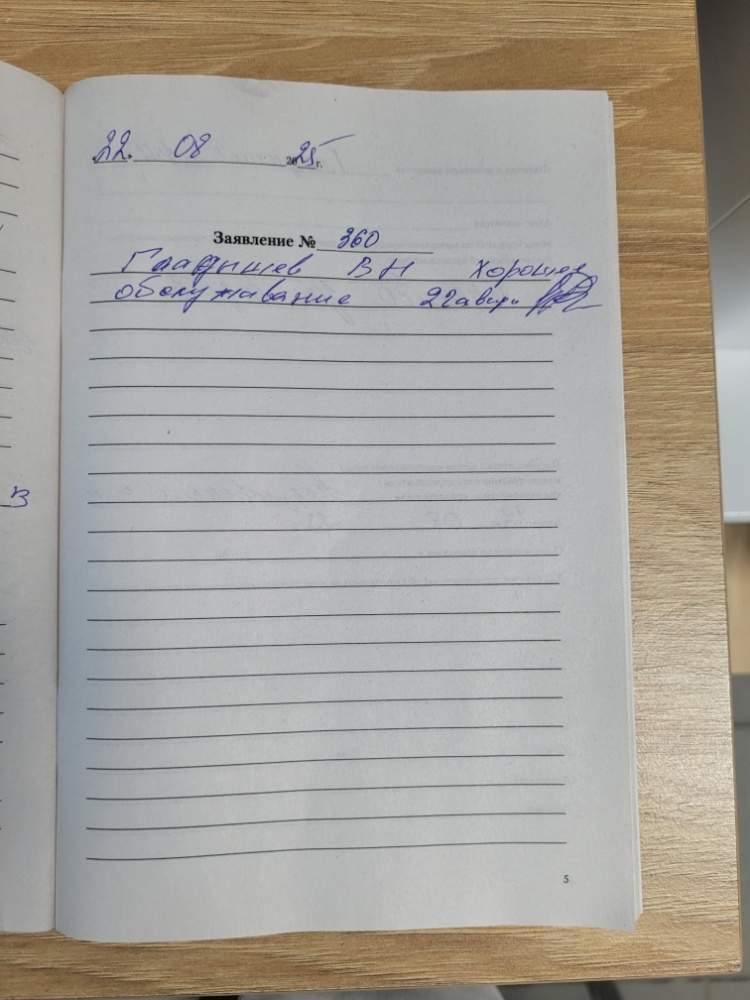 22. 08 2025 г.
Заявление № 360
Гладышев ВН Хорошее
обслуживание 22
5
В